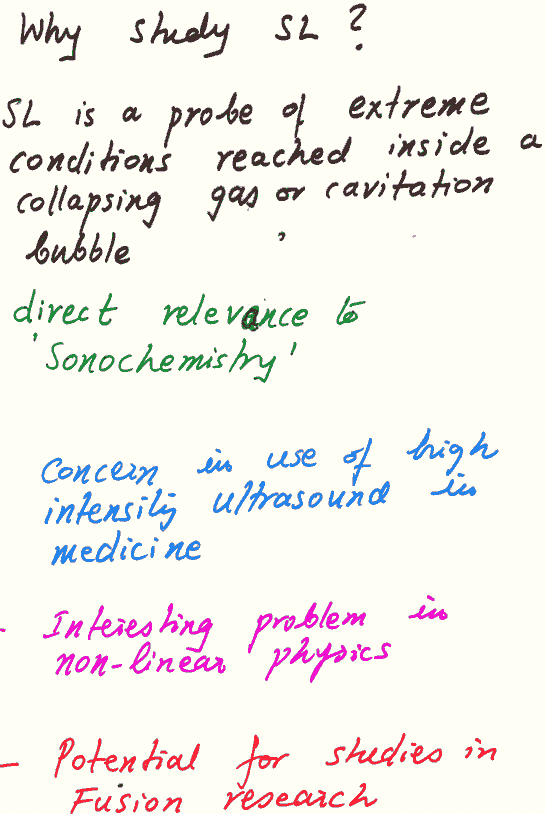 Why study SL ?
SL is a probe of extreme
conditions reached inside a
collapsing gas or cavitation
bubble
direct relevance to
'Sonochemistry'
Concern in use of high
intensity ultrasound in
medicine
- Interesting problem in
non-linear physics
- Potential for studies in
Fusion research